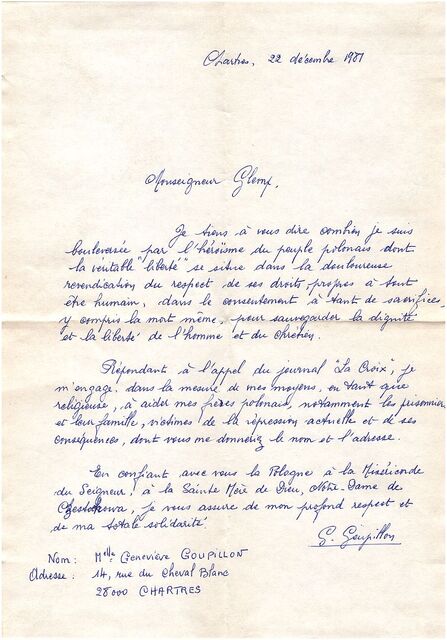 Chartres, 22 décembre 1981
Monseigneur Glemp,
Je tiens à vous dire combien je suis
bouleversée par l'héroïsme du peuple polonais dont
la véritable "liberté" se situe dans la douloureuse
revendication du respect de ses droits propres à tout
être humain, dans le consentement à tant de sacrifices,
y compris la mort même, pour sauvegarder la dignité
et la liberté de l'homme et du Chrétien.
Répondant à l'appel du journal "La Croix", je
m'engage, dans la mesure de mes moyens, en tant que
religieuse, à aider mes frères polonais, notamment les prisonniers
et leur famille, victimes de la répression actuelle et de ses
conséquences, dont vous me donnerez le nom et l'adresse.
En confiant avec vous la Pologne à la Miséricorde
du Seigneur, à la Sainte Mère de Dieu, Notre-Dame de
Czestokowa, je vous assure de mon profond respect et
de ma totale solidarité
G. Goupillon
Nom : Melle Geneviève GOUPILLON
Adresse : 14, rue du Cheval Blanc
28000 CHARTRES